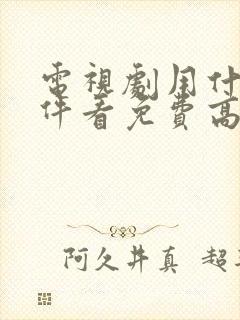 電視劇用什
件看免費高
阿久井真 超